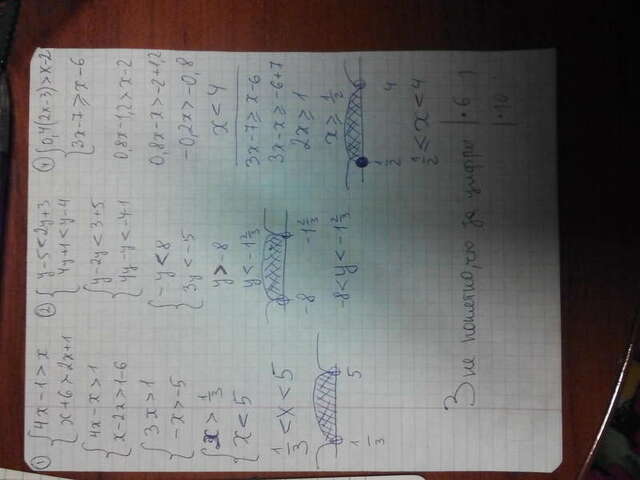 ① { 4x - 1 > x
x + 6 > 2x + 1
{ 4x - x > 1
x - 2x > 1 - 6
{ 3x > 1
-x > -5
{ x > 1/3
x < 5
1/3 < x < 5
1/3 5
② { y - 5 < 2y + 3
4y + 1 < y - 4
{ y - 2y < 3 + 5
4y - y < -4 - 1
{ -y < 8
3y < -5
y > -8
y < -1 2/3
-8 -1 2/3
-8 < y < -1 2/3
④ { 0,4(2x - 3) > x - 2
3x - 7 ≥ x - 6
0,8x - 1,2 > x - 2
0,8x - x > -2 + 1,2
-0,2x > -0,8
x < 4
3x - 7 ≥ x - 6
3x - x ≥ -6 + 7
2x ≥ 1
x ≥ 1/2
1/2 4
1/2 ≤ x < 4
3 не понятно, что за цифры | · 6 |
| · 10 |